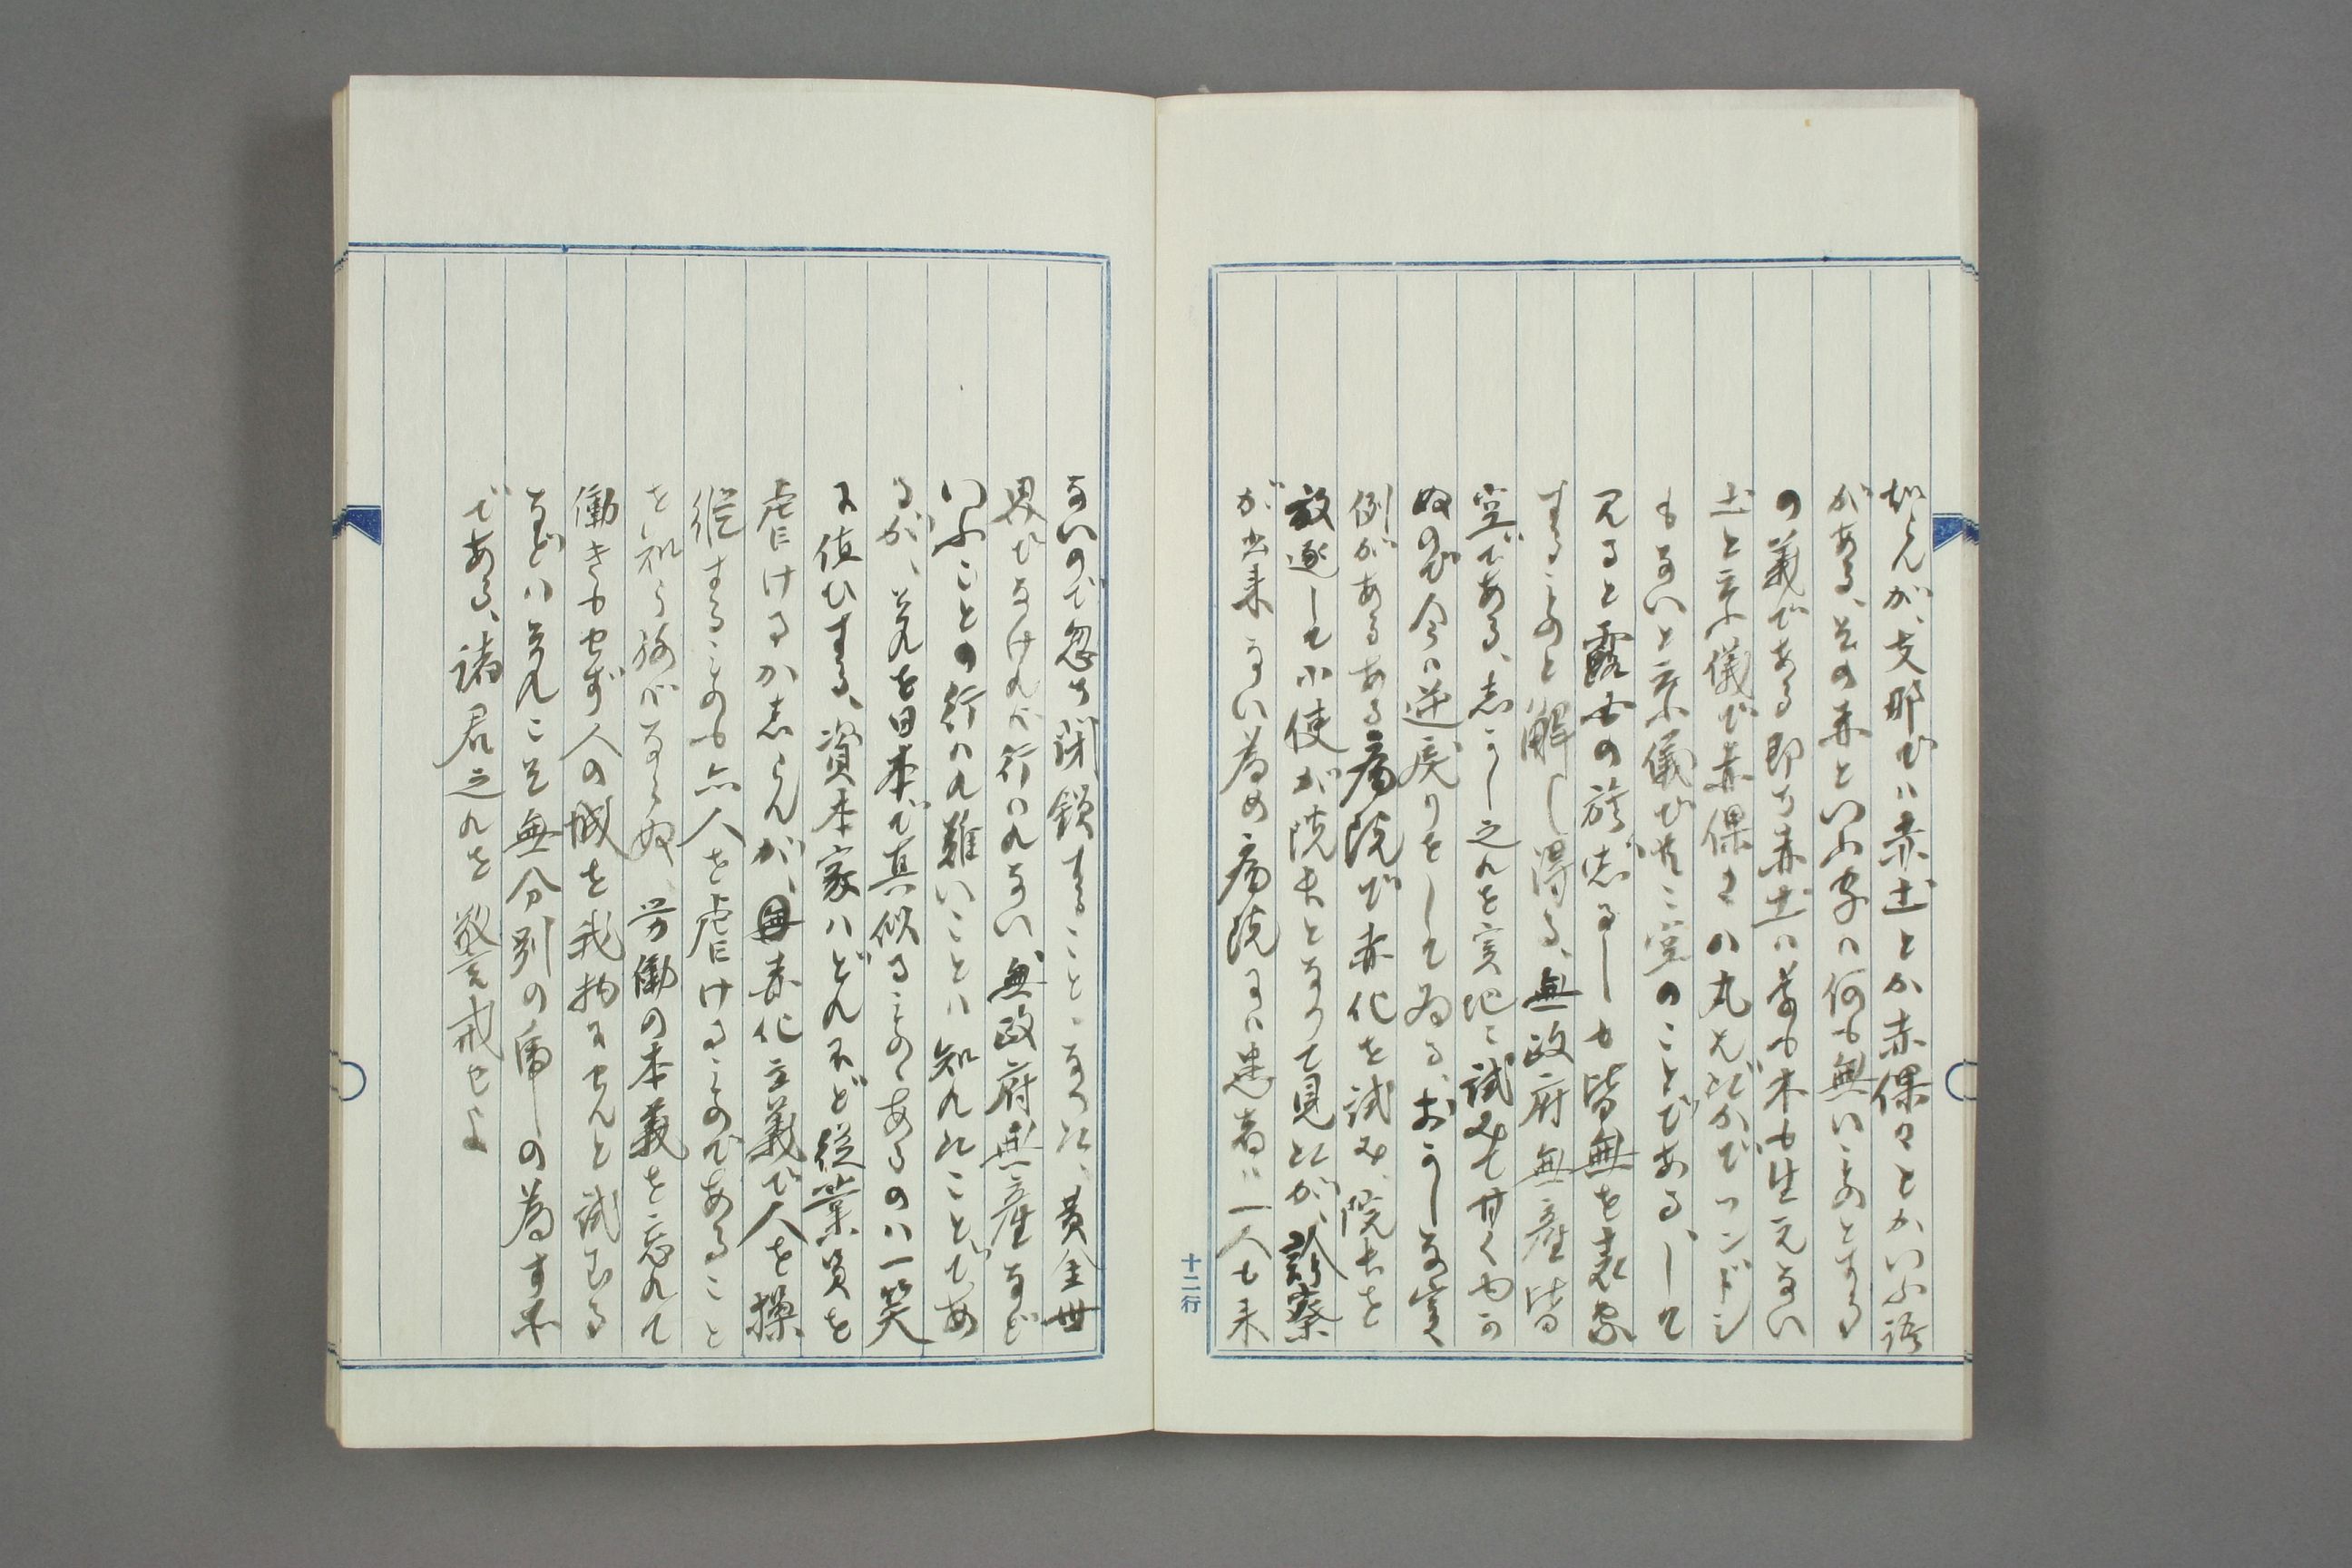 だらんが、支那でハ赤土とか赤倮々とかいふ語
がある、その赤といふ字ハ何も無いことのとする
の義である即ち赤土ハ草も木も生えない
土と云ふ儀で赤倮々ハ丸はだかでフンドシ
もないと云ふ儀で共に空のことである、して
見ると露西の旗じるしも皆無を表象
することのと解し得る、無政府無産皆
空である、志かし之れを実地に試みて甘くゆか
ぬので今ハ逆戻りをしてゐる、おかしな実
例がある、ある病院で赤化を試み、院長を
放逐して小使が院長となつて見たが、診察
が出来ない為め病院にハ患者ハ一人も来
ないので忽ち閉鎖することゝなつた、黄金世
界でなけれバ行ハれない、無政府無産など
いふことの行ハれ難いことハ知れたことであ
るが、其れを日本で真似ることのあるのハ一笑
に値ひする、資本家ハどれほど従業員を
虐けるか志らんが、赤化主義で人を操
縦することのも亦人を虐けることのであること
を知ら猶バならぬ、労働の本義を忘れて
働きもせず人の城を我物にせんと試むる
などハ其れこそ無分別の者の為す事
である、諸君之れを警戒せよ
十二行